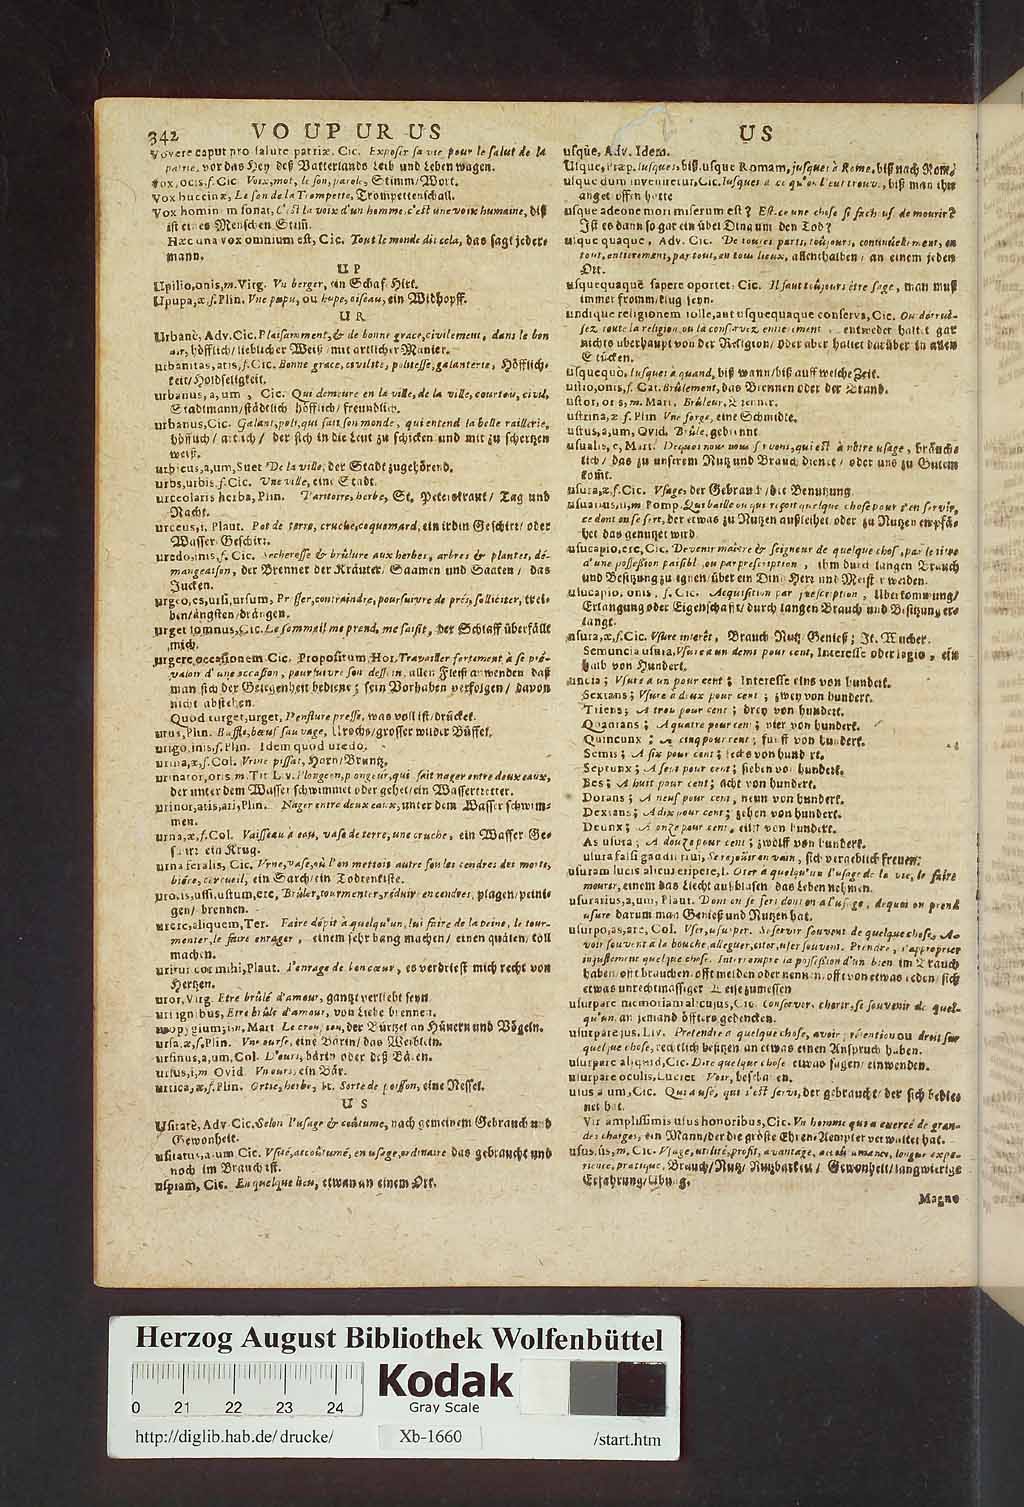 342 VO UP UR US
Vovere caput pro salute patriæ. Cic. Exposer sa vie pour le salut de la
patrie, vor das Heyl deß Vatterlands Leib und Leben wagen.
Vox, ocis, f. Cic. Voix, mot, le son, parole, Stimm/Wort.
Vox buccinæ, Le son de la Trompette, Trompettenschall.
Vox hominem sonat, C'est la voix d'un homme, c'est une voix humaine, diß
ist eines Menschen Stim̃.
Hæc una vox omnium est, Cic. Tout le monde dit cela, das sagt jeder-
mann.
UP
Upilio, onis, m. Virg. Vn berger, ein Schaf Hirt.
Upupa, æ, f. Plin. Vne pupu, ou hupe, oiseau, ein Widhopff.
UR
Urbanè, Adv. Cic. Plaisamment, & de bonne grace, civilement, dans le bon
air, höfflich/lieblicher Weiß mit artlicher Manier.
urbanitas, atis, f. Cic. Bonne grace, civilité, politesse, galanterie, Höfflich-
keit/Holdseligkeit.
urbanus, a, um, Cic. Qui demeure en la ville, de la ville, courtou, civil,
Stadtmann/städtlich höfflich/freundlich.
urbanus, Cic. Galant, poli, qui sait son monde, qui entend la belle raillerie,
höfflich/artlich/ der sich in die Leut zu schicken und mit zu schertzen
weiß.
urbicus, a, um, Suet De la ville, der Stadt zugehörend.
urbs, urbis, f. Cic. Vne ville, eine Stadt.
urceolaris herba, Plin. Paritoire, herbe, St. Peterskraut/ Tag und
Nacht.
urceus, i, Plaut. Pot de terre, cruche, coquemard, ein irdin Geschirr/oder
Wasser Geschirr.
uredo, inis, f. Cic. Secheresse & brûlure aux herbes, arbres & plantes, dé-
mangeaison, der Brenner der Kräuter/ Saamen und Saaten/ das
Jucken.
urgeo, es, ursi, ursum, Presser, contraindre, poursuivre de prés, solliciter, trei-
ben/ängsten/drängen.
urget somnus, Cic. Le sommeil me prend, me saisit, der Schlaff überfällt
mich.
urgere occasionem Cic. Propositum, Hor. Travailler fortement à se pré-
valoir d'une occasion, poursuivre son dessein, allen Fleiß anwenden daß
man sich der Gelegenheit bediene; sein Vorhaben verfolgen/ davon
nicht abstehen.
Quod turget, urget, L'enflure presse, was voll ist/drücket.
urus, Plin. Buffle, bœuf sauvage, Urochs/grosser wilder Büffel.
urigo, inis, f. Plin. Idem quod uredo.
urina, æ, f. Col. Vrine pissat, Harn/Bruntz.
urinator, oris, m. Tit. Liv. Plongeon, plongeur, qui sait nager entre deux eaux,
der unter dem Wasser schwimmet oder gehet/ein Wassertretter.
urinor, atis, ari, Plin. Nager entre deux eaux, unter dem Wasser schwim-
men.
urna, æ, f. Col. Vaisseau à eau, vase de terre, une cruche, ein Wasser Ge-
schirr ein Krug.
urna feralis, Cic. Vrne, vase, où l'on mettoit autre fois les cendres des morts,
biére, cercueil, ein Sarch/ein Todtenkiste.
uro, is, ussi, ustum, ere, Brûler, tourmenter, réduire en cendres, plagen/peini-
gen/brennen.
urere, aliquem, Ter. Faire dépit à quelqu'un, lui faire de la peine, le tour-
menter, le faire enrager, einem sehr bang machen/einen quälen/toll
machen.
uritur cor mihi, Plaut. J'enrage de bon cœur, es verdriest mich recht von
Hertzen.
uror, Virg. Etre brûlé d'amour, gantz verliebt seyn.
uri ignibus, Etre brûlé d'amour, von Liebe brennen.
uropygium, ii, n, Mart Le croupion, der Bürtzel an Hünern und Vögeln.
ursa, æ, f, Plin. Vne ourse, eine Bärin/das Weiblein.
ursinus, a, um, Col. D'ours, bärin oder deß Bären.
ursus, i, m Ovid Vn ours, ein Bär.
urtica, æ, f. Plin. Ortie, herbe, it. Sorte de poisson, eine Nessel.
US
Usitatè, Adv. Cic. Selon l'usage & coûtume, nach gemeinem Gebrauch und
Gewonheit.
usitatus, a, um Cic. Vsité, accoûtumé, en usage, ordinaire das gebraucht und
noch im Brauch ist.
uspiam, Cic. En quelque lieu, etwan an einem Ort.
US
usque, Adv. Idem.
Usque, Præp. Jusques, biß, usque Romam, jusques à Rome, biß nach Rom,
usque dum inveniretur, Cic. Jusques à ce qu'on l'eut trouvé, biß man ihn
angetroffen hette
usque adeone mori miserum est? Est-ce une chose si facheuse de mourir?
Ist es dann so gar ein übel Ding um den Tod?
usque quaque, Adv. Cic. De toutes parts, toûjours, continuellement, en
tout, entierement, par tout, en tous lieux, allenthalben/an einem jeden
Ort.
usquequaque sapere oportet, Cic. Il faut toûjours étre sage, man muß
immer fromm/klug seyn.
undique religionem tolle, aut usquequaque conserva, Cic. Ou détrui-
sez toute la religion, ou la conservez entierement, entweder haltet gar
nichts überhaupt von der Religion/oder aber haltet darüber in allen
Stücken.
usquequò, Jusques à quand, biß wann/biß auff welche Zeit.
ustio, onis, f. Cat. Brûlement, das Brennen oder der Brand.
ustor, oris, m. Mart. Brûleur, Brenner.
ustrina, æ f. Plin Vne forge, eine Schmidte.
ustus, a, um, Ovid. Brûlé, gebrennt
usualis, e, Mart. Dequoi nous nous servons, qui est à nôtre usage, bräuch-
lich/ das zu unserem Nutz und Brauch dienet/ oder uns zu Gutem
kom̃t.
usura, æ, f. Cic. Vsage, der Gebrauch/die Benutzung.
usuarius, ii, m Pomp. Qui baille ou qui reçoit quelque chose pour s'en servir,
ce dont on se sert, der etwas zu Nutzen außleihet oder zu Nutzen empfä-
het das genutzet wird
usucapio, ere, Cic. Devenir maître & seigneur de quelque chose, par le titre
d'une possession paisible, ou par prescription, ihm durch langen Brauch
und Besitzung zu eignen/über ein Ding Herr und Meister werden.
usucapio, onis, f. Cic. Acquisition par prescription, Uberkomung/
Erlangung oder Eigenschafft/durch langen Brauch und Besitzung er-
langt.
usura, æ, f. Cic. Vsure interêt, Brauch Nutz Genieß; It. Wucher.
Semuncia usura, Vsure à un demi pour cent, Interesse oder lagio, ein
halb von Hundert.
uncia; Vsure à un pour cent; Interesse eins von hundert.
Sextans; Vsure à deux pour cent; zwey von hundert.
Triens; A trou pour cent; drey von hundert.
Quadrans; A quatre pour cent; vier von hundert.
Quincunx; A cinq pour cent; fünff von hundert.
Semis; A six pour cent; sechs von hundert.
Septunx; A sept pour cent; sieben von hundert.
Bes; A huit pour cent; acht von hundert.
Dorans; A neuf pour cent, neun von hundert.
Dextans; A dix pour cent; zehen von hundert.
Deunx; A onze pour cent, eilff von hundert.
As usura; A douze pour cent; zwölff von hundert.
usura falsi gaudii frui, Se rejoüir en vain, sich vergeblich freuen;
usuram lucis alicui eripere, l. Oter à quelqu'un l'usage de la vie, le faire
mourir, einem das Liecht außblasen das Leben nehmen.
usurarius, a, um, Plaut. Dont on se sert dont on a l'usage, dequoi on prend
usure darum man Genieß und Nutzen hat.
usurpo, as, are, Col. Vser, usurper. Se servir souvent de quelque chose, A-
voir souvent à la bouche, alleguer, citer, user souvent. Prendre, s'approprier
injustement quelque chose. Interrompre la possession d'un bien im Brauch
haben/offt brauchen/offt melden oder nennen/offt von etwas reden/sich
etwas unrechtmässiger Weise zumessen
usurpare memoriam alicujus, Cic. Conserver, cherir, se souvenir de quel-
qu'un, an jemand öffters gedencken.
usurpare jus, Liv. Pretendre à quelque chose, avoir prétention ou droit sur
quelque chose, rechtlich besitzen an etwas einen Anspruch haben.
usurpare aliquid, Cic. Dire quelque chose etwas sagen/einwenden.
usurpare oculis, Lucret Voir, beschauen.
usus a um, Cic. Qui a usé, qui s'est servi, der gebraucht/der sich bedie-
net hat.
Vir amplissimis usus honoribus, Cic. Vn homme qui a exercé de gran-
des charges, ein Mann/der die gröste Ehren-Aempter verwaltet hat.
usus, ûs, m. Cic. Vsage, utilité, profit, avantage, accoûtumance, longue expe-
rience, pratique, Brauch/Nutz/ Nutzbarkeit/ Gewonheit/langwierige
Erfahrung/Übung.
Magno
Herzog August Bibliothek Wolfenbüttel
0 21 22 23 24
Kodak
Gray Scale
http://diglib.hab.de/drucke/ Xb-1660 /start.htm